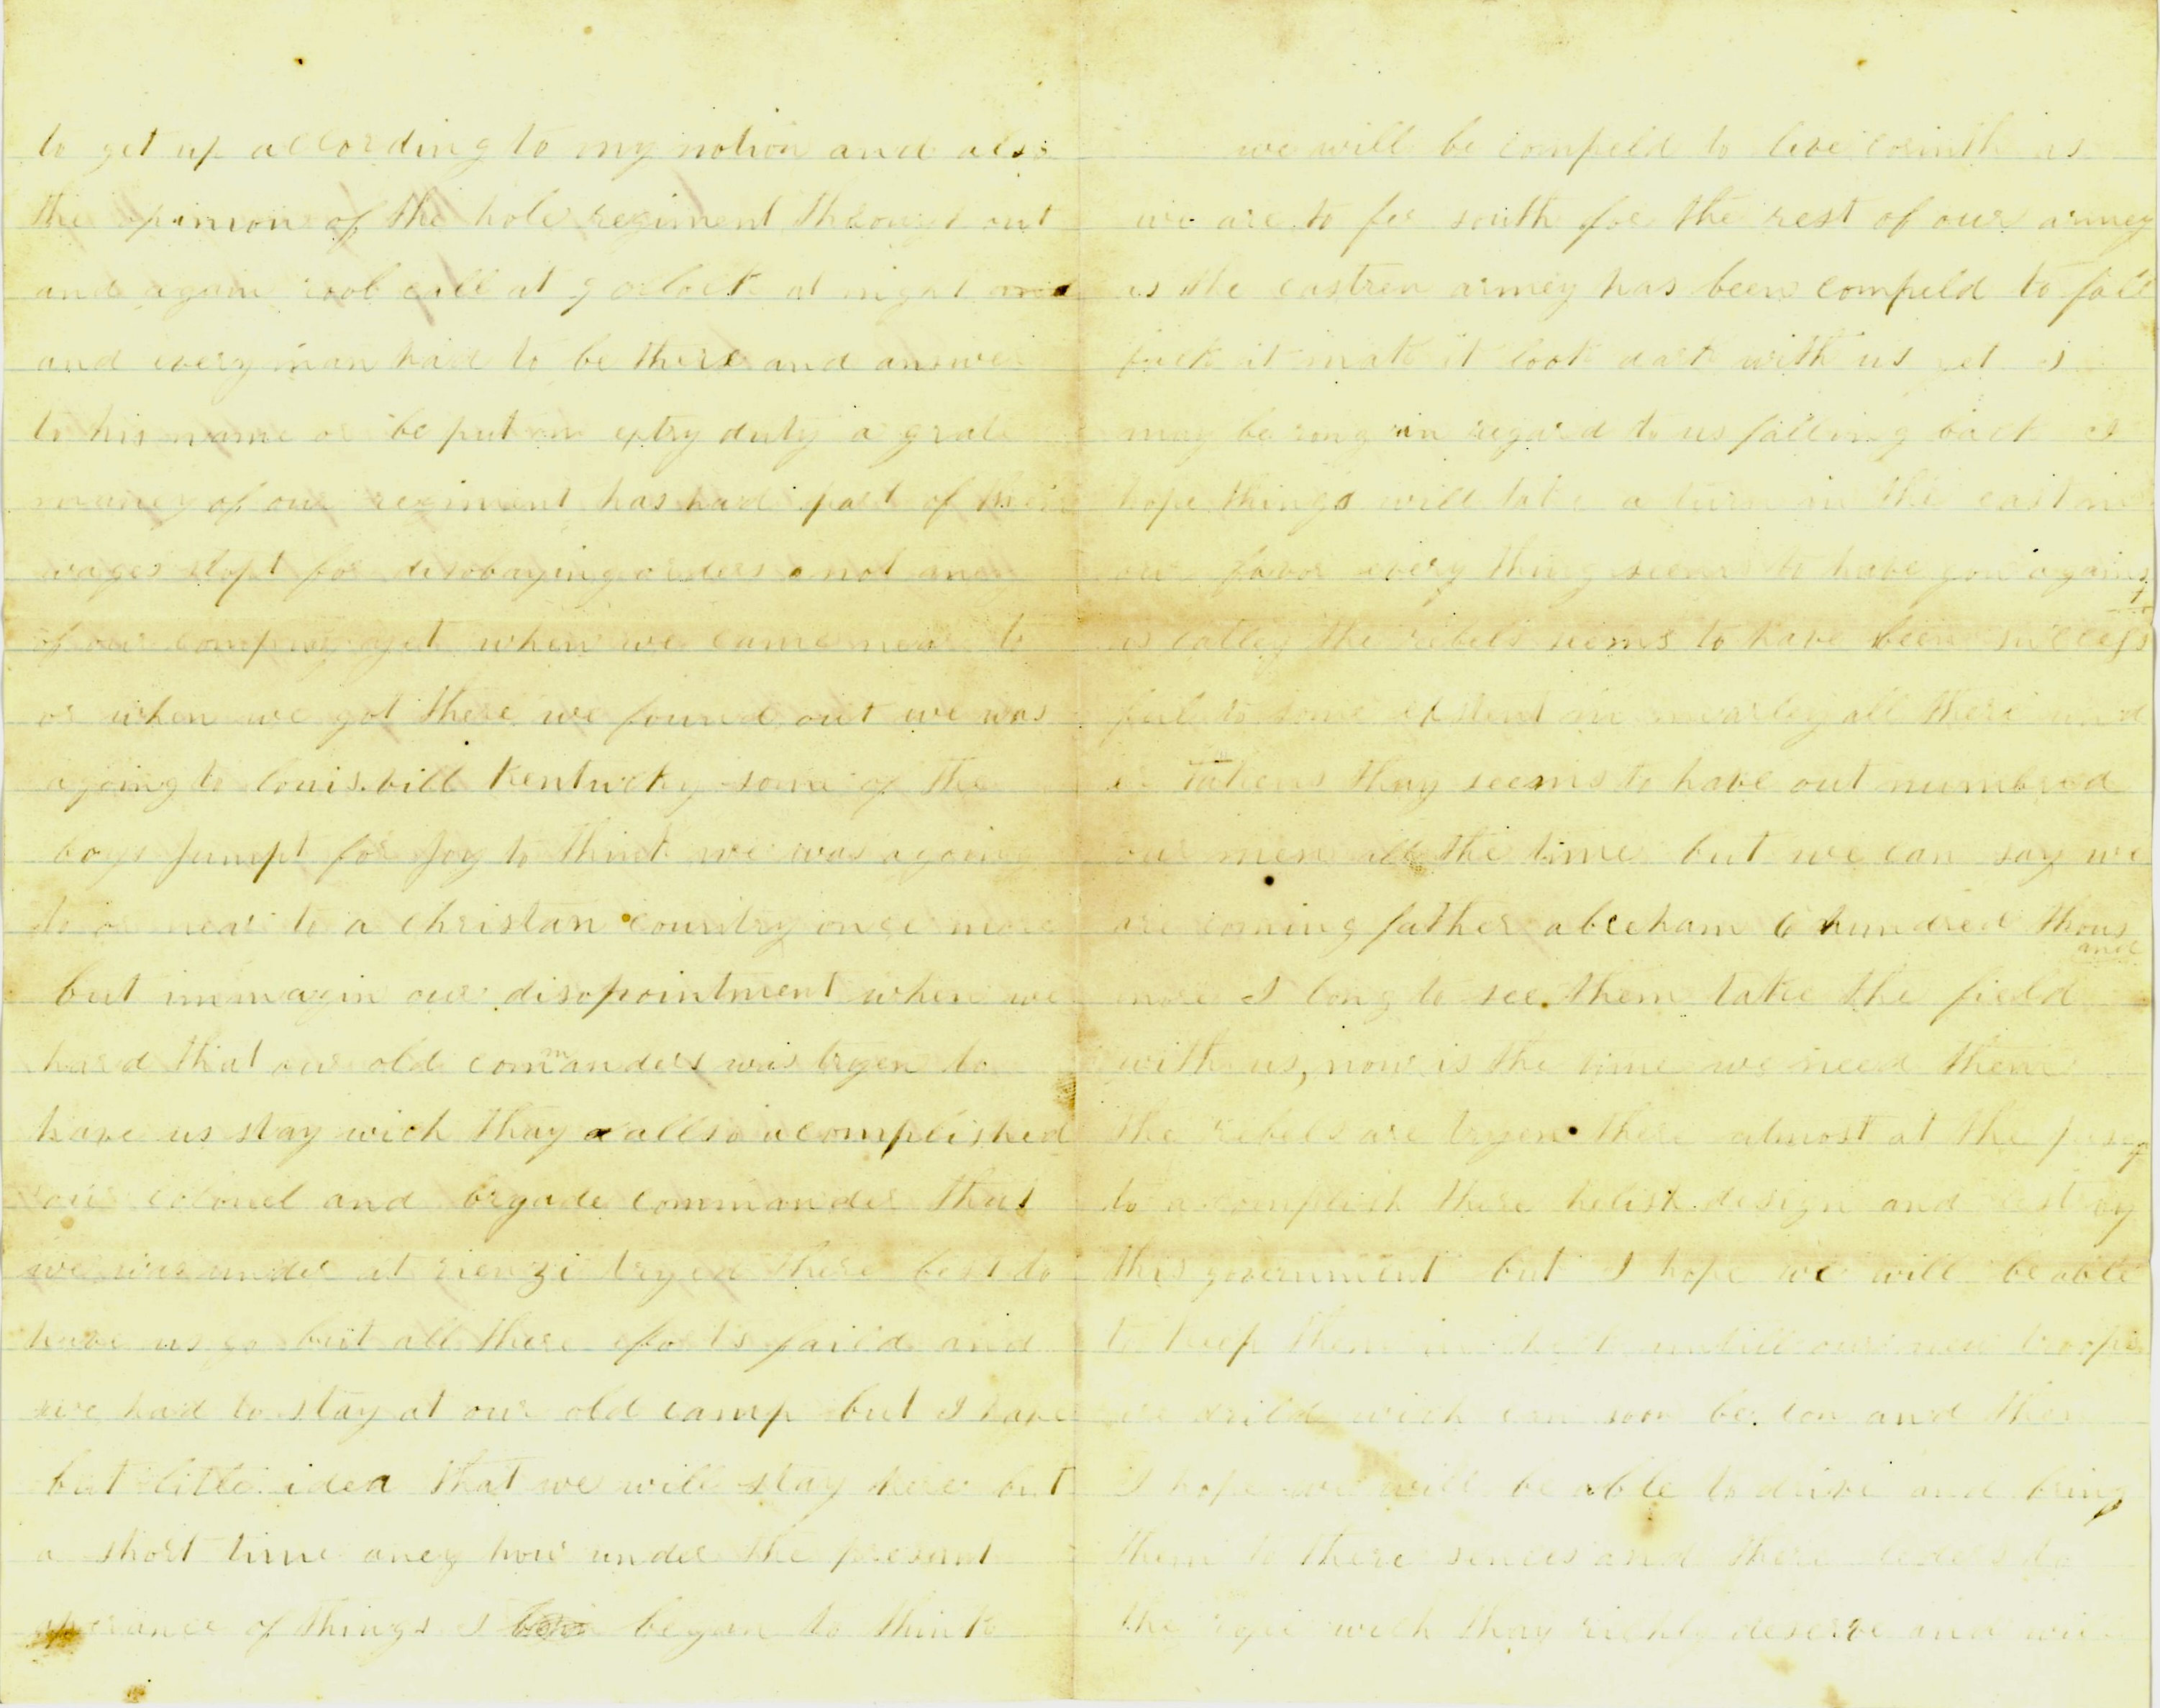 to get up according to my notion and also
the opinion of the hole regiment througe out
and again role call at 9 oclock at night and
and every man had to be there and answer
to his name or be put on extry duty a grate
maney of our regiment has had part of their
wages stopt for disobaying orders not aney
of our compney yet when we came near to
or when we got there we found out we was
agoing to louisvill Kentucky some of the
boys Jumpt for Joy to think we was agoing
to or near to a christan country once more
but immagin our disopointment when we
hard that our old commanders was tryen to
have us stay wich thay allso acomplished
our colonel and brgade commander that
we was under at rienzi tryed there best to
have us go but all there eforts faild and
we had to stay at our old camp but I have
but little idea that we will stay here but
a short time aney how under the present
aperance of things I began to think
we will be compeld to leve corinth as
we are to fer south for the rest of our armey
as the eastren armey has been compeld to fall
back it make it look dark with us yet I
may be rong in regard to us falling back I
hope things will take a turn in the east in
our favor every thing seems to have gon against
us latley the rebels seems to have been success
ful to some extent in nearley all there und
er takens thay seems to have out numbred
our men all the time but we can say we
are coming father abreham 6 hundred thousand
more I long to see them take the field
with us, now is the time we need them
the rebels are tryen there almost at the
to acomplish there helish design and destroy
this government but I hope we will be able
to keep them in check untill our new troops
are drild wich can soon be don and then
I hope we will be able to drive and bring
them to there sences and there leders to
the rope wich thay richly deserve and